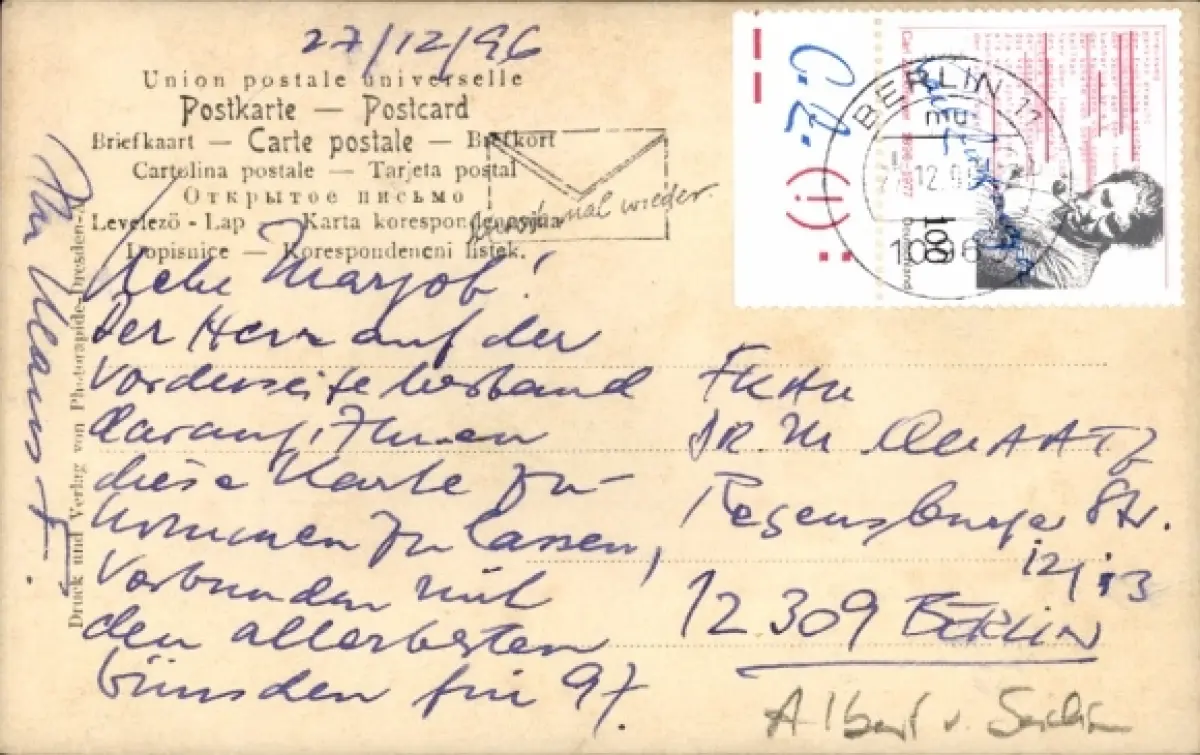 27/12/96
Union postale universelle
Postkarte — Postcard
Briefkaart — Carte postale — Brefkort
Cartolina postale — Tarjeta postal
Открытое письмо
Levelező - Lap — Karta korespondencyjna
Dopisnice — Korespondenční lístek.
mal wieder.
Der Herr auf der
Vorderseite bestand
darauf, Ihnen
diese Karte zu-
kommen zu lassen,
Verbunden mit
den allerbesten
Wünsden für 97.
Ihr Klaus
Druck und Verlag von Photorapide-Dresden-
C. Z. (!):
BERLIN 11
mu
12.9
1096
100
Deutschland
Carl
1977
FRAU
DR. M
Regensburger Str.
12309 BERLIN
Albert v.